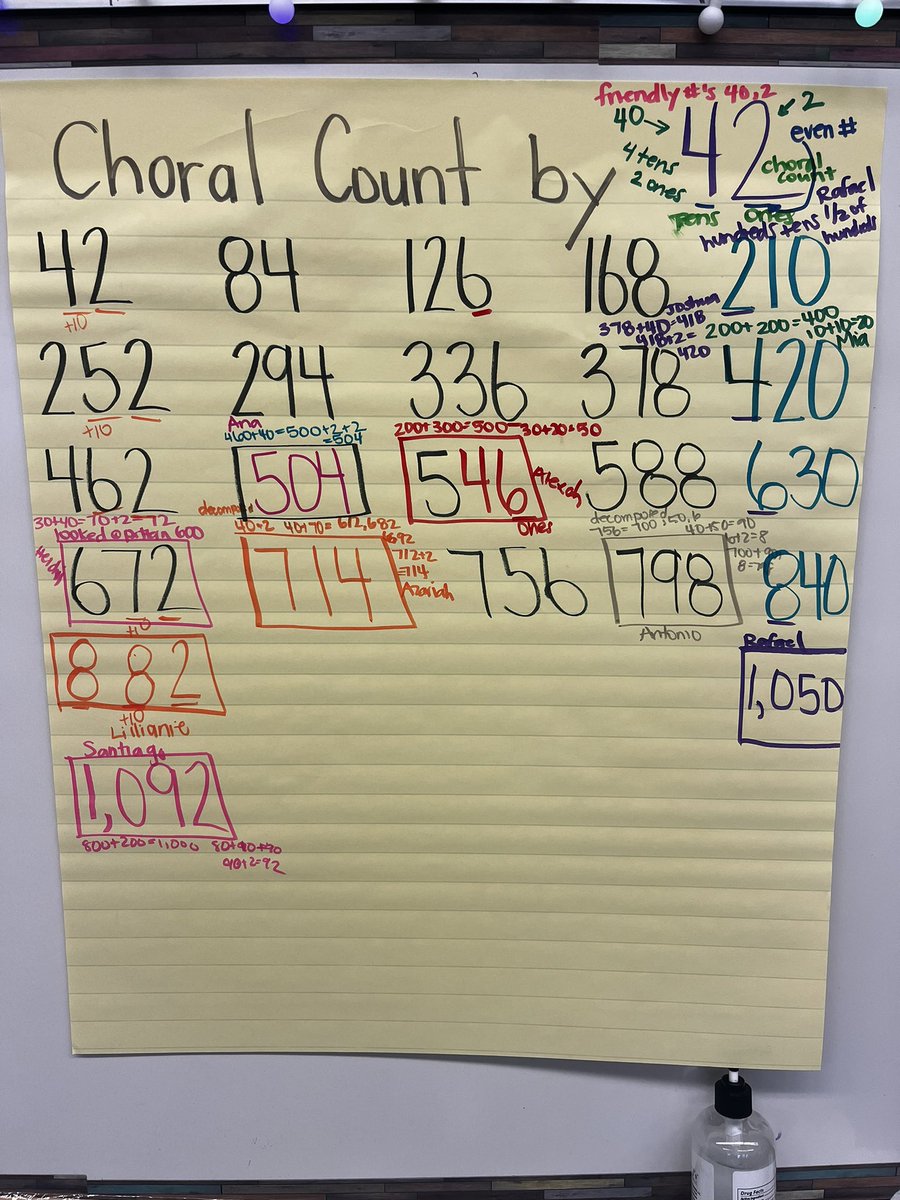 friendly #'s 40,2
40→ 42 ← 2
even #
4 tens
2 ones
choral
count
Choral Count by
Tens Ones
Rafael
hundreds tens 1/2 of
hundreds
42 84 126 168 210
+10
Joshua
378+40=418
418+2=
420
200+200=400
10+10=20
Mia
252 294 336 378 420
+10
Ana
460+40=500+2+2
=504
200+300=500 30+20=50
462 504 546 588 630
Alexah
Ones
30+40=70+2=72
looked @ pattern 600
decompose
40+2 40+70= 672,682
692
712+2
=714
Azariah
decomposed
756=700, 50, 6
40+50=90
6+2=8
672 714 756 798 840
+10
Antonio
Rafael
882 1,050
+10
Lillianie
Santiago
1,092
800+200=1,000 80+90+90
90+2=92